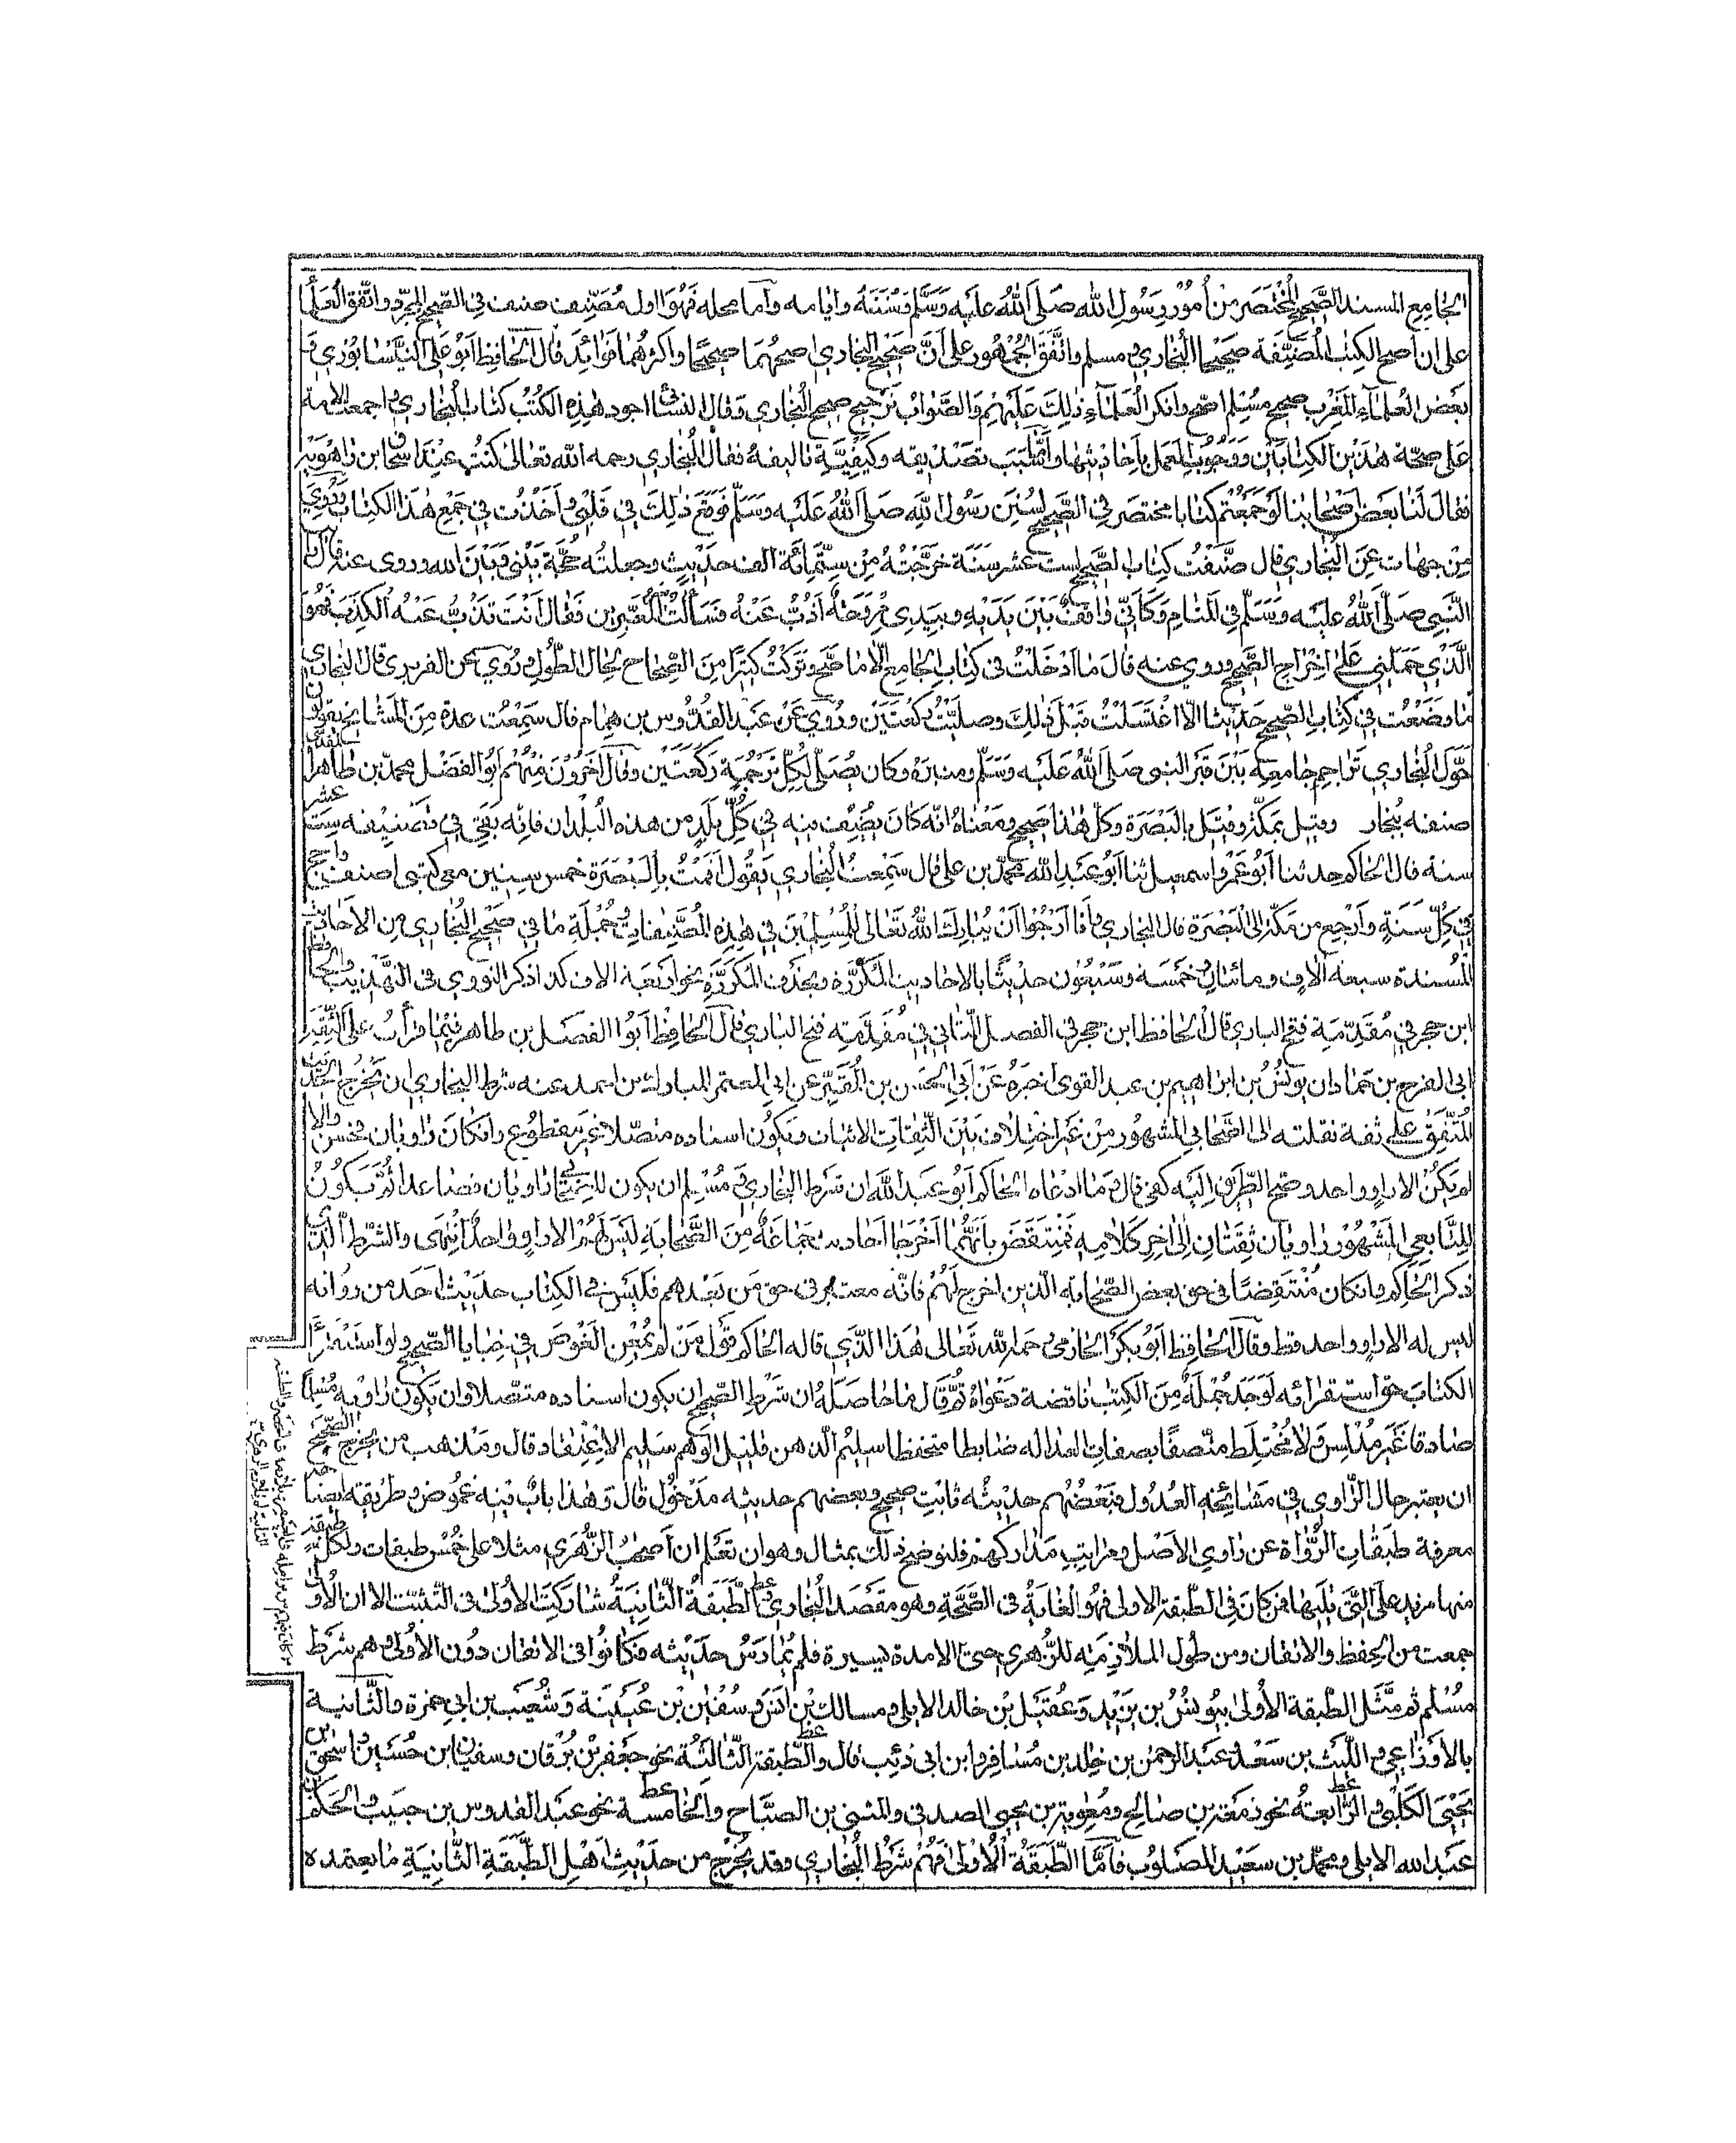 الجامع المسند الصحيح المختصر من أمور رسول الله صلى الله عليه وسلم وسننه وايامه واما محله فهو اول مصنف صنف في الصحيح المجرد واتفق العلما
على ان اصح الكتب المصنفة صحيحا البخاري ومسلم واتفق الجمهور على أن صحيح البخاري اصحهما صحيحا واكثرهما فوائد قال الحافظ ابو علي النيسابوري و
بعض العلماء المغرب صحيح مسلم اصح وانكر العلماء ذلك عليهم والصواب ترجيح صحيح البخاري وقال النسائي اجود هذه الكتب كتاب البخاري واجمعت الامة
على صحة هذين الكتابين ووجوب العمل باحاديثهما واما سبب تصديقه وكيفية تاليفه فقال البخاري رحمه الله تعالى كنت عند اسحق ابن راهويه
فقال لنا بعض اصحابنا لو جمعتم كتابا مختصر في الصحيح لسنن رسول الله صلى الله عليه وسلم فوقع ذلك في قلبي واخذت في جمع هذا الكتاب وروي
من جهات عن البخاري قال صنفت كتاب الصحيح لست عشر سنة خرجته من ستمائة الف حديث وجعلته حجة بيني وبين الله وروى عنه قال رأيت
النبي صلى الله عليه وسلم في المنام وكأني واقف بين يديه وبيدي مروحة أذب عنه فسألت المعبرين فقال انت تذب عنه الكذب فهو
الذي حملني على اخراج الصحيح وروي عنه قال ما ادخلت في كتاب الجامع الا ما صح وتركت كثيرا من الصحاح لحال الطول وروي عن الفربري قال البخاري
ما وضعت في كتاب الصحيح حديثا الا اغتسلت قبل ذلك وصليت ركعتين وروي عن عبد القدوس بن همام قال سمعت عدة من المشايخ يقولون
حول البخاري تراجم جامعه بين قبر النبي صلى الله عليه وسلم ومنبره وكان يصلي لكل ترجمة ركعتين وقال آخرون منهم ابو الفضل محمد بن طاهر المقدسي
صنفه ببخار وقيل بمكة وقيل بالبصرة وكل هذا صحيح ومعناه انه كان يصنف فيه في كل بلد من هذه البلدان فانه بقي في تصنيفه ست عشر
سنة قال الحاكم حدثنا ابو عمرو اسمعيل ثنا ابو عبد الله محمد بن علي قال سمعت البخاري يقول اقمت بالبصرة خمس سنين معي كتبي اصنف واحج
في كل سنة وارجع من مكة الى البصرة قال البخاري وأنا ارجو أن يبارك الله تعالى للمسلمين في هذه المصنفات وجملة ما في صحيح البخاري من الاحاديث
المسندة سبعة آلاف ومائتان وخمسة وسبعون حديثا بالاحاديث المكررة وبحذف المكررة نحو اربعة الاف كذا ذكر النووي في التهذيب والحافظ
ابن حجر في مقدمة فتح الباري قال الحافظ ابن حجر في الفصل الثاني في مقدمته فتح الباري قال الحافظ ابو الفضل بن طاهر فيما قرأت على الثقة
ابي الفرج بن حماد ان يونس بن ابراهيم بن عبد القوي اخبره عن أبي الحسن بن المقير عن ابي المعتمر المبارك بن احمد عنه شرط البخاري ان يخرج الحديث
المتفق على ثقة نقلته الى الصحابي المشهور من غير اختلاف بين الثقات الاثبات ويكون اسناده متصلا غير مقطوع وان كان راويان فحسن والا
لم يكن الا راو واحد وصح الطريق اليه كفى قال وما ادعاه الحاكم ابو عبد الله ان شرط البخاري ومسلم ان يكون للصحابي راويان فصاعدا ثم يكون
للتابعي المشهور راويان ثقتان الى اخر كلامه فمنتقض بأنهما أخرجا احاديث جماعة من الصحابة ليس لهم الا راو واحد انتهى والشرط الذي
ذكر الحاكم وان كان منتقضا في حق بعض الصحابة الذين اخرج لهم فانه معتبر في حق من بعدهم فليس في الكتاب حديث احد من رواته
ليس له الا راو واحد قط وقال الحافظ ابو بكر الحازمي رحمه الله تعالى هذا الذي قاله الحاكم قول من لم يمعن الغوص في خبايا الصحيح ولو استقرأ
الكتاب حق استقرائه لوجد جملة من الكتب ناقضة دعواه ثم قال ما حاصله ان شرط الصحيح ان يكون اسناده متصلا وان يكون راويه مسلما
صادقا غير مدلس ولا مختلط متصفا بصفات العدالة ضابطا متحفظا سليم الذهن قليل الوهم سليم الاعتقاد قال ومذهب من يخرج الصحيح
ان يعتبر حال الراوي في مشائخه العدول فبعضهم حديثه ثابت صحيح وبعضهم حديثه مدخول قال وهذا باب فيه غموض وطريقه ايضا
معرفة طبقات الرواة عن راوي الاصل ومراتب مداركهم فلنوضح ذلك بمثال وهو ان تعلم ان أصحاب الزهري مثلا على خمس طبقات ولكل طبقة
منها مزيد على التي تليها فمن كان في الطبقة الاولى فهو الغاية في الصحة وهو مقصد البخاري والطبقة الثانية شاركت الاولى في التثبت الا ان الاولى
جمعت من الحفظ والاتقان ومن طول الملازمة للزهري حتى الا مدة يسيرة فلم تمارس حديثه فكانوا في الاتقان دون الاولى وهم شرط
مسلم ثم مثل الطبقة الاولى بيونس بن يزيد وعقيل بن خالد الايلي ومالك بن انس وسفين بن عيينة وشعيب بن ابي حمزة والثانية
بالاوزاعي والليث بن سعد وعبد الرحمن بن خلد بن مسافر وابن ابي ذئب قال والطبقة الثالثة نحو جعفر بن برقان وسفيان ابن حسين واسحق بن
يحيى الكلبي والرابعة نحو زمعة بن صالح ومعوية بن يحيى الصدفي والمثنى بن الصباح والخامسة نحو عبد القدوس بن حبيب والحكم بن
عبد الله الايلي ومحمد بن سعيد المصلوب فاما الطبقة الاولى فهم شرط البخاري وقد يخرج من حديث اهل الطبقة الثانية ما يعتمده